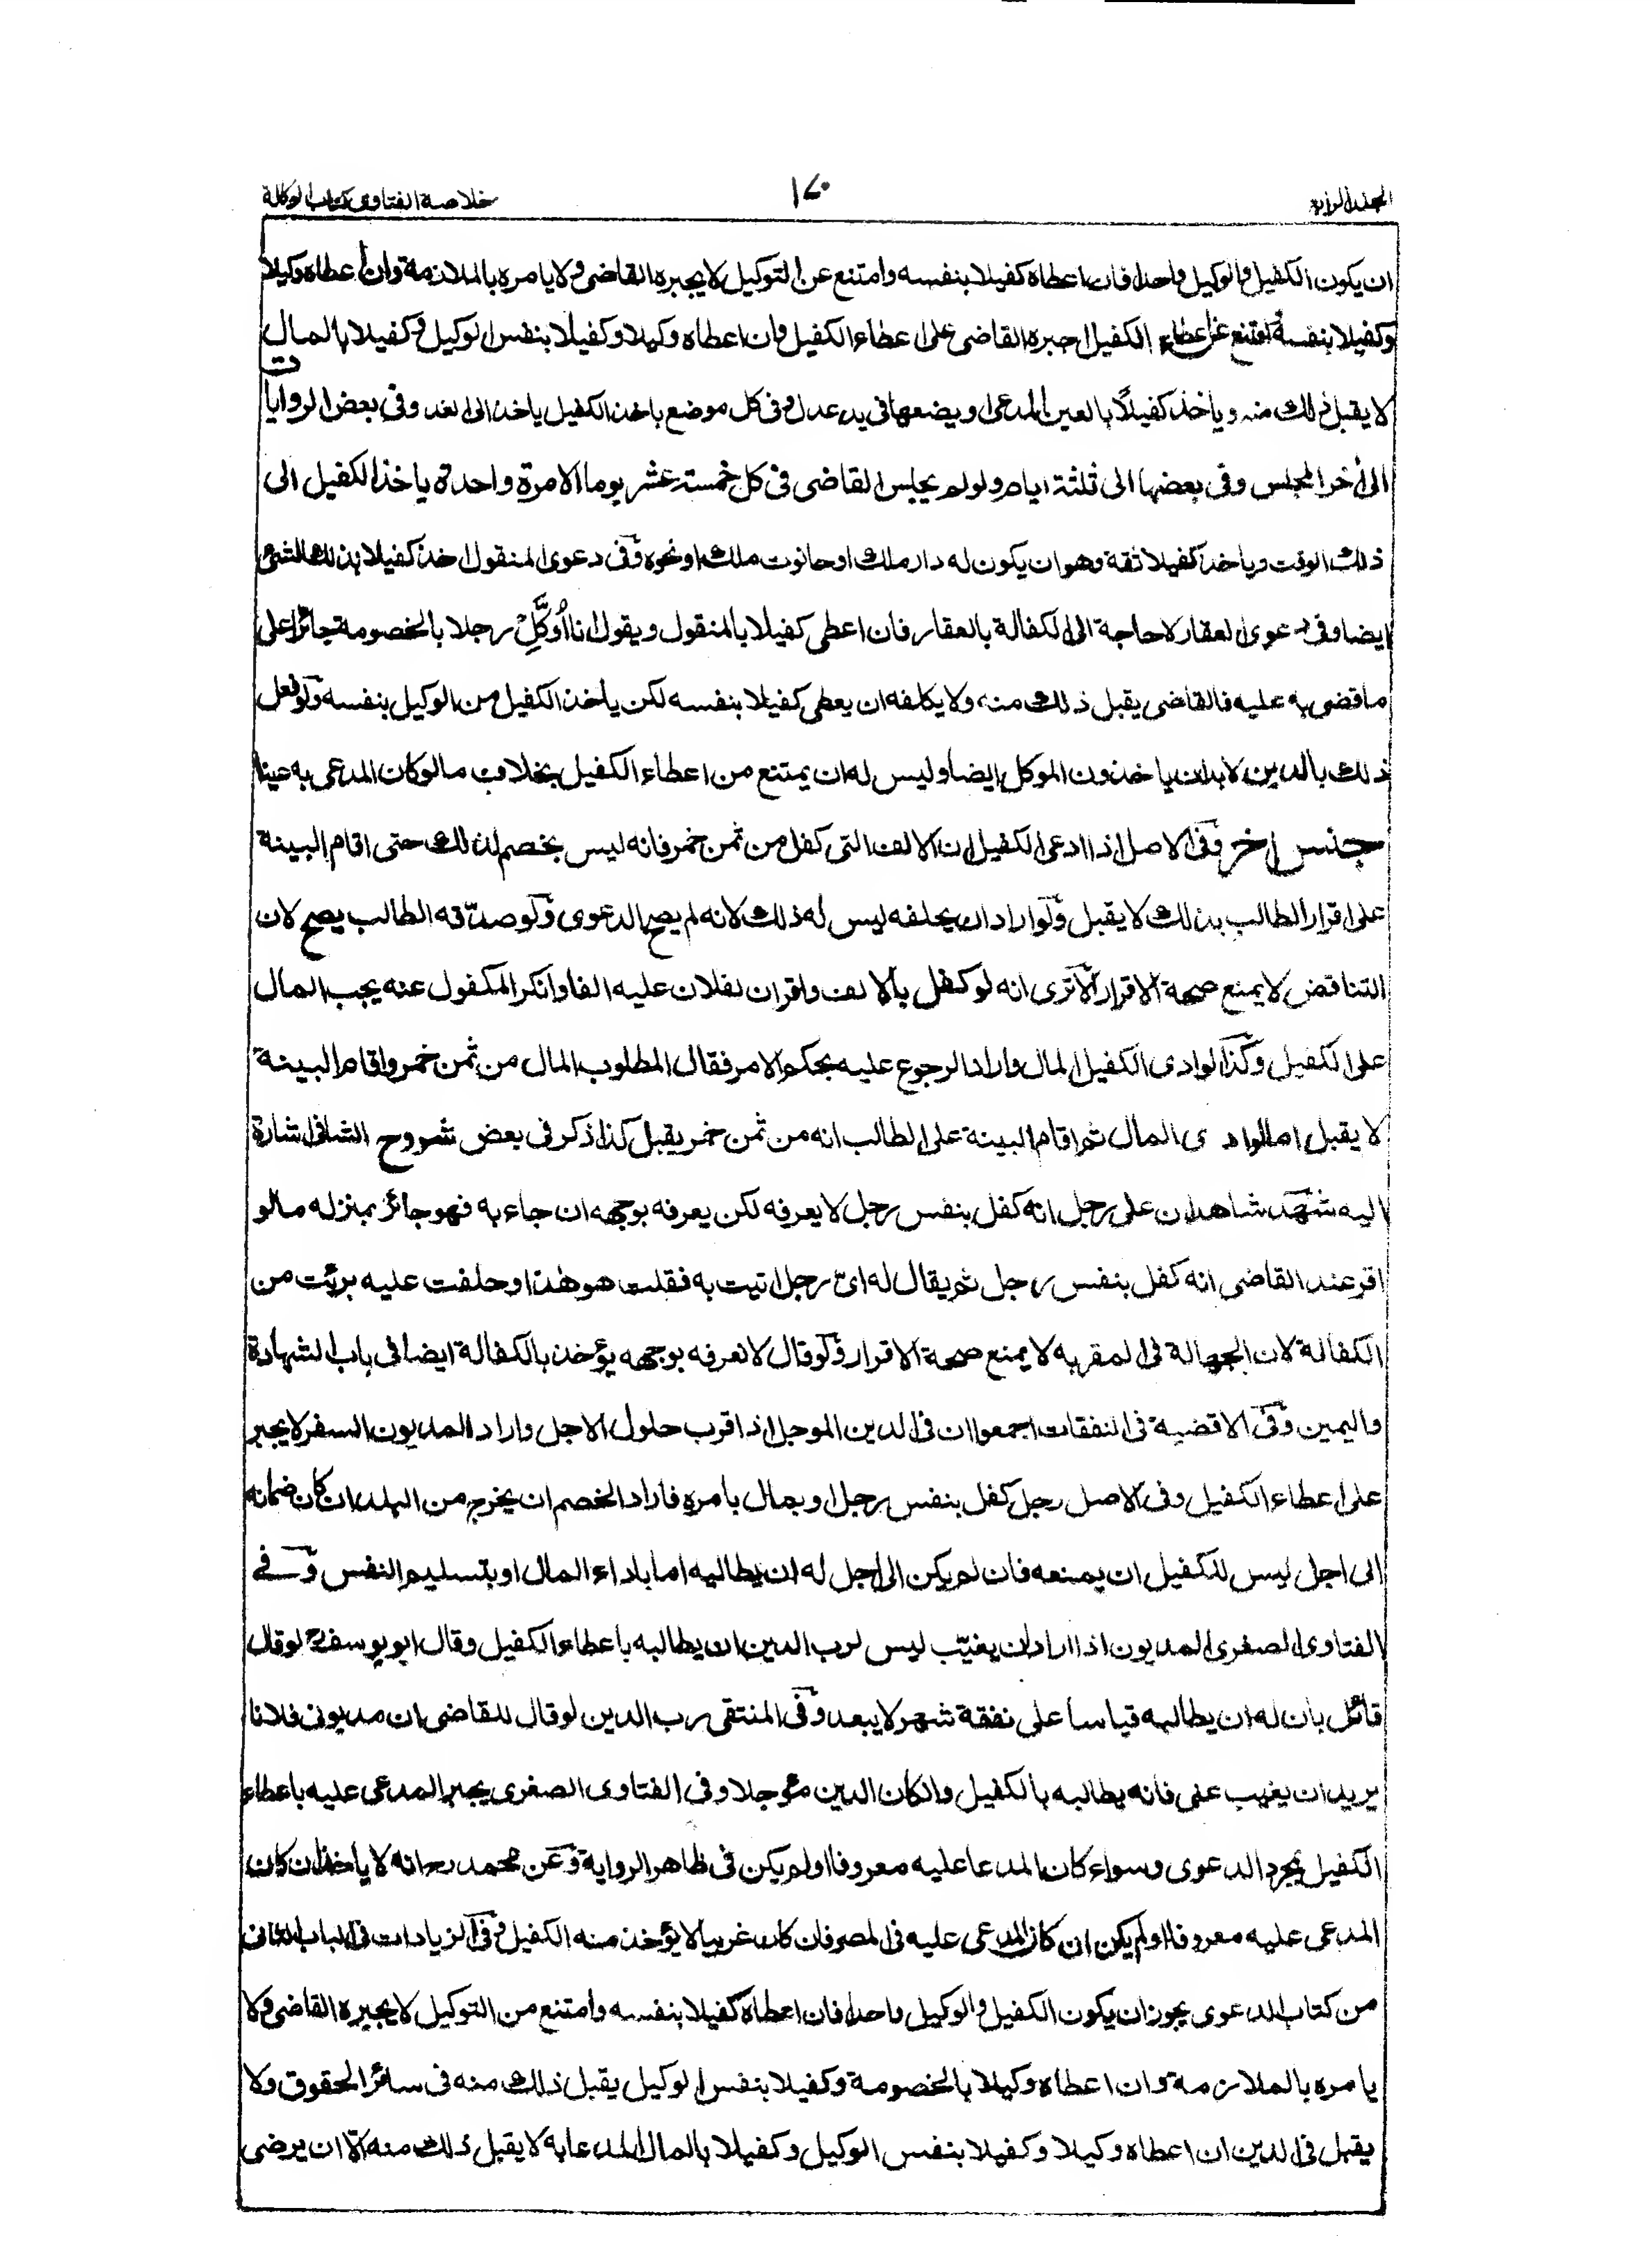 الجلد الرابع ١٧٠ خلاصة الفتاوى كتاب الوكالة
ان يكون الكفيل والوكيل واحدا فان اعطاه كفيلا بنفسه وامتنع عن التوكيل لا يجبره القاضى ولا يامره بالملازمة وان اعطاه وكيلا
وكفيلا بنفسه وامتنع عن اعطاء الكفيل اجبره القاضى على اعطاء الكفيل وان اعطاه وكيلا وكفيلا بنفس الوكيل وكفيلا بالمال
لا يقبل ذلك منه وياخذ كفيلا بالعين المدعى ويضعها فى يد عدل وفى كل موضع باخذ الكفيل ياخذ الى الغد وفى بعض الروايات
الى أخر المجلس وفى بعضها الى ثلثة ايام ولو لم يجلس القاضى فى كل خمسة عشر يوما الا مرة واحدة ياخذ الكفيل الى
ذلك الوقت وياخذ كفيلا ثقة وهو ان يكون له دار ملك او حانوت ملك او نحوه وفى دعوى المنقول اخذ كفيلا بذلك الشئ
ايضا وفى دعوى العقار لا حاجة الى الكفالة بالعقار فان اعطى كفيلا بالمنقول ويقول انا اُوَكِّلُ رجلا بالخصومة جائزا على
ما قضى به عليه فالقاضى يقبل ذلك منه ولا يكلفه ان يعطى كفيلا بنفسه لكن يأخذ الكفيل من الوكيل بنفسه ولو فعل
ذلك بالدين لا بد ان ياخذ من الموكل ايضا وليس له ان يمتنع من اعطاء الكفيل بخلاف ما لو كان المدعى به عينا
جنس اخر وفى الاصل اذا ادعى الكفيل ان الالف التى كفل من ثمن خمر فانه ليس بخصم لذلك حتى اقام البينة
على اقرار الطالب بذلك لا يقبل ولو اراد ان يحلفه ليس له ذلك لانه لم يصح الدعوى ولو صدّقه الطالب يصح لان
التناقض لا يمنع صحة الاقرار الا ترى انه لو كفل بالالف واقر ان لفلان عليه الفا وانكر المكفول عنه يجب المال
على الكفيل وكذا لو ادى الكفيل المال واراد الرجوع عليه بحكم الامر فقال المطلوب المال من ثمن خمر واقام البينة
لا يقبل اما لو ادى المال ثم اقام البينة على الطالب انه من ثمن خمر يقبل كذا ذكر فى بعض شروح الشافى اشارة
اليه شهد شاهدان على رجل انه كفل بنفس رجل لا يعرفه لكن يعرفه بوجهه ان جاء به فهو جائز بمنزله ما لو
اقر عند القاضى انه كفل بنفس رجل ثم يقال له اىّ رجل اتيت به فقلت هو هذا وحلفت عليه برئت من
الكفالة لان الجهالة فى المقر به لا يمنع صحة الاقرار ولو قال لا نعرفه بوجهه يؤخذ بالكفالة ايضا فى باب الشهادة
واليمين وفى الاقضية فى النفقات اجمعوا ان فى الدين الموجل اذا قرب حلول الاجل واراد المديون السفر لا يجبر
على اعطاء الكفيل وفى الاصل رجل كفل بنفس رجل او بمال بامره فاراد الخصم ان يخرج من البلد ان كان ضمانه
الى اجل ليس للكفيل ان يمنعه فان لم يكن الى اجل له ان يطالبه اما باداء المال او بتسليم النفس وفى
الفتاوى الصغرى المديون اذا اراد ان يغيّب ليس لرب الدين ان يطالبه باعطاء الكفيل وقال ابو يوسف رح لو قال
قائل بان له ان يطالبه قياسا على نفقة شهر لا يبعد وفى المنتقى رب الدين لو قال للقاضى ان مديونى فلانا
يريد ان يغيب عنى فانه يطالبه بالكفيل وان كان الدين مؤجلا وفى الفتاوى الصغرى يجبر المدعى عليه باعطاء
الكفيل بمجرد الدعوى وسواء كان المدعا عليه معروفا او لم يكن فى ظاهر الرواية وعن محمد رح انه لا ياخذ ان كان
المدعى عليه معروفا او لم يكن ان كان المدعى عليه فى المصر فان كان غريبا لا يؤخذ منه الكفيل وفى الزيادات فى الباب الثانى
من كتاب الدعوى يجوز ان يكون الكفيل والوكيل واحدا فان اعطاه كفيلا بنفسه وامتنع من التوكيل لا يجبره القاضى ولا
يامره بالملازمة وان اعطاه وكيلا بالخصومة وكفيلا بنفس الوكيل يقبل ذلك منه فى سائر الحقوق ولا
يقبل فى الدين ان اعطاه وكيلا وكفيلا بنفس الوكيل وكفيلا بالمال المدعا به لا يقبل ذلك منه الا ان يرضى